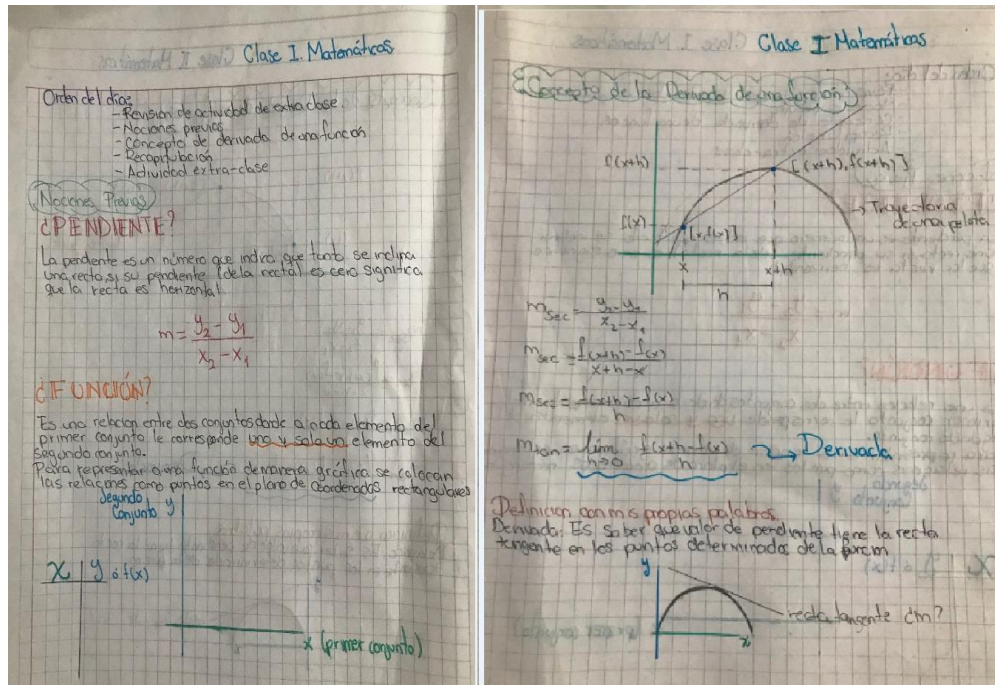 Clase I. Matemáticas
Orden del día:
- Revisión de actividad de extra clase.
- Nociones previas
- Concepto de derivada de una función
- Recapitulación
- Actividad extra-clase
Nociones Previas
¿PENDIENTE?
La pendiente es un número que indica que tanto se inclina
una recta, si su pendiente (de la recta) es cero significa
que la recta es horizontal.
m = y₂ - y₁ / x₂ - x₁
¿FUNCIÓN?
Es una relación entre dos conjuntos donde a cada elemento del
primer conjunto le corresponde uno y solo un elemento del
segundo conjunto.
Para representar a una función de manera gráfica se colocan
las relaciones como puntos en el plano de coordenadas rectangulares
Segundo
Conjunto y
x | y ó f(x)
x (primer conjunto)
Clase I Matemáticas
Concepto de la Derivada de una función
f(x+h)
[(x+h), f(x+h)]
f(x)
[x, f(x)]
→ Trayectoria
de una pelota
x
x+h
h
m sec = y₂ - y₁ / x₂ - x₁
m sec = f(x+h) - f(x) / x+h-x
m sec = f(x+h) - f(x) / h
m tan = lím h→0 f(x+h - f(x) / h → Derivada
Definición con mis propias palabras.
Derivada: Es saber que valor de pendiente tiene la recta
tangente en los puntos determinados de la
y
recta tangente ¿m?
x